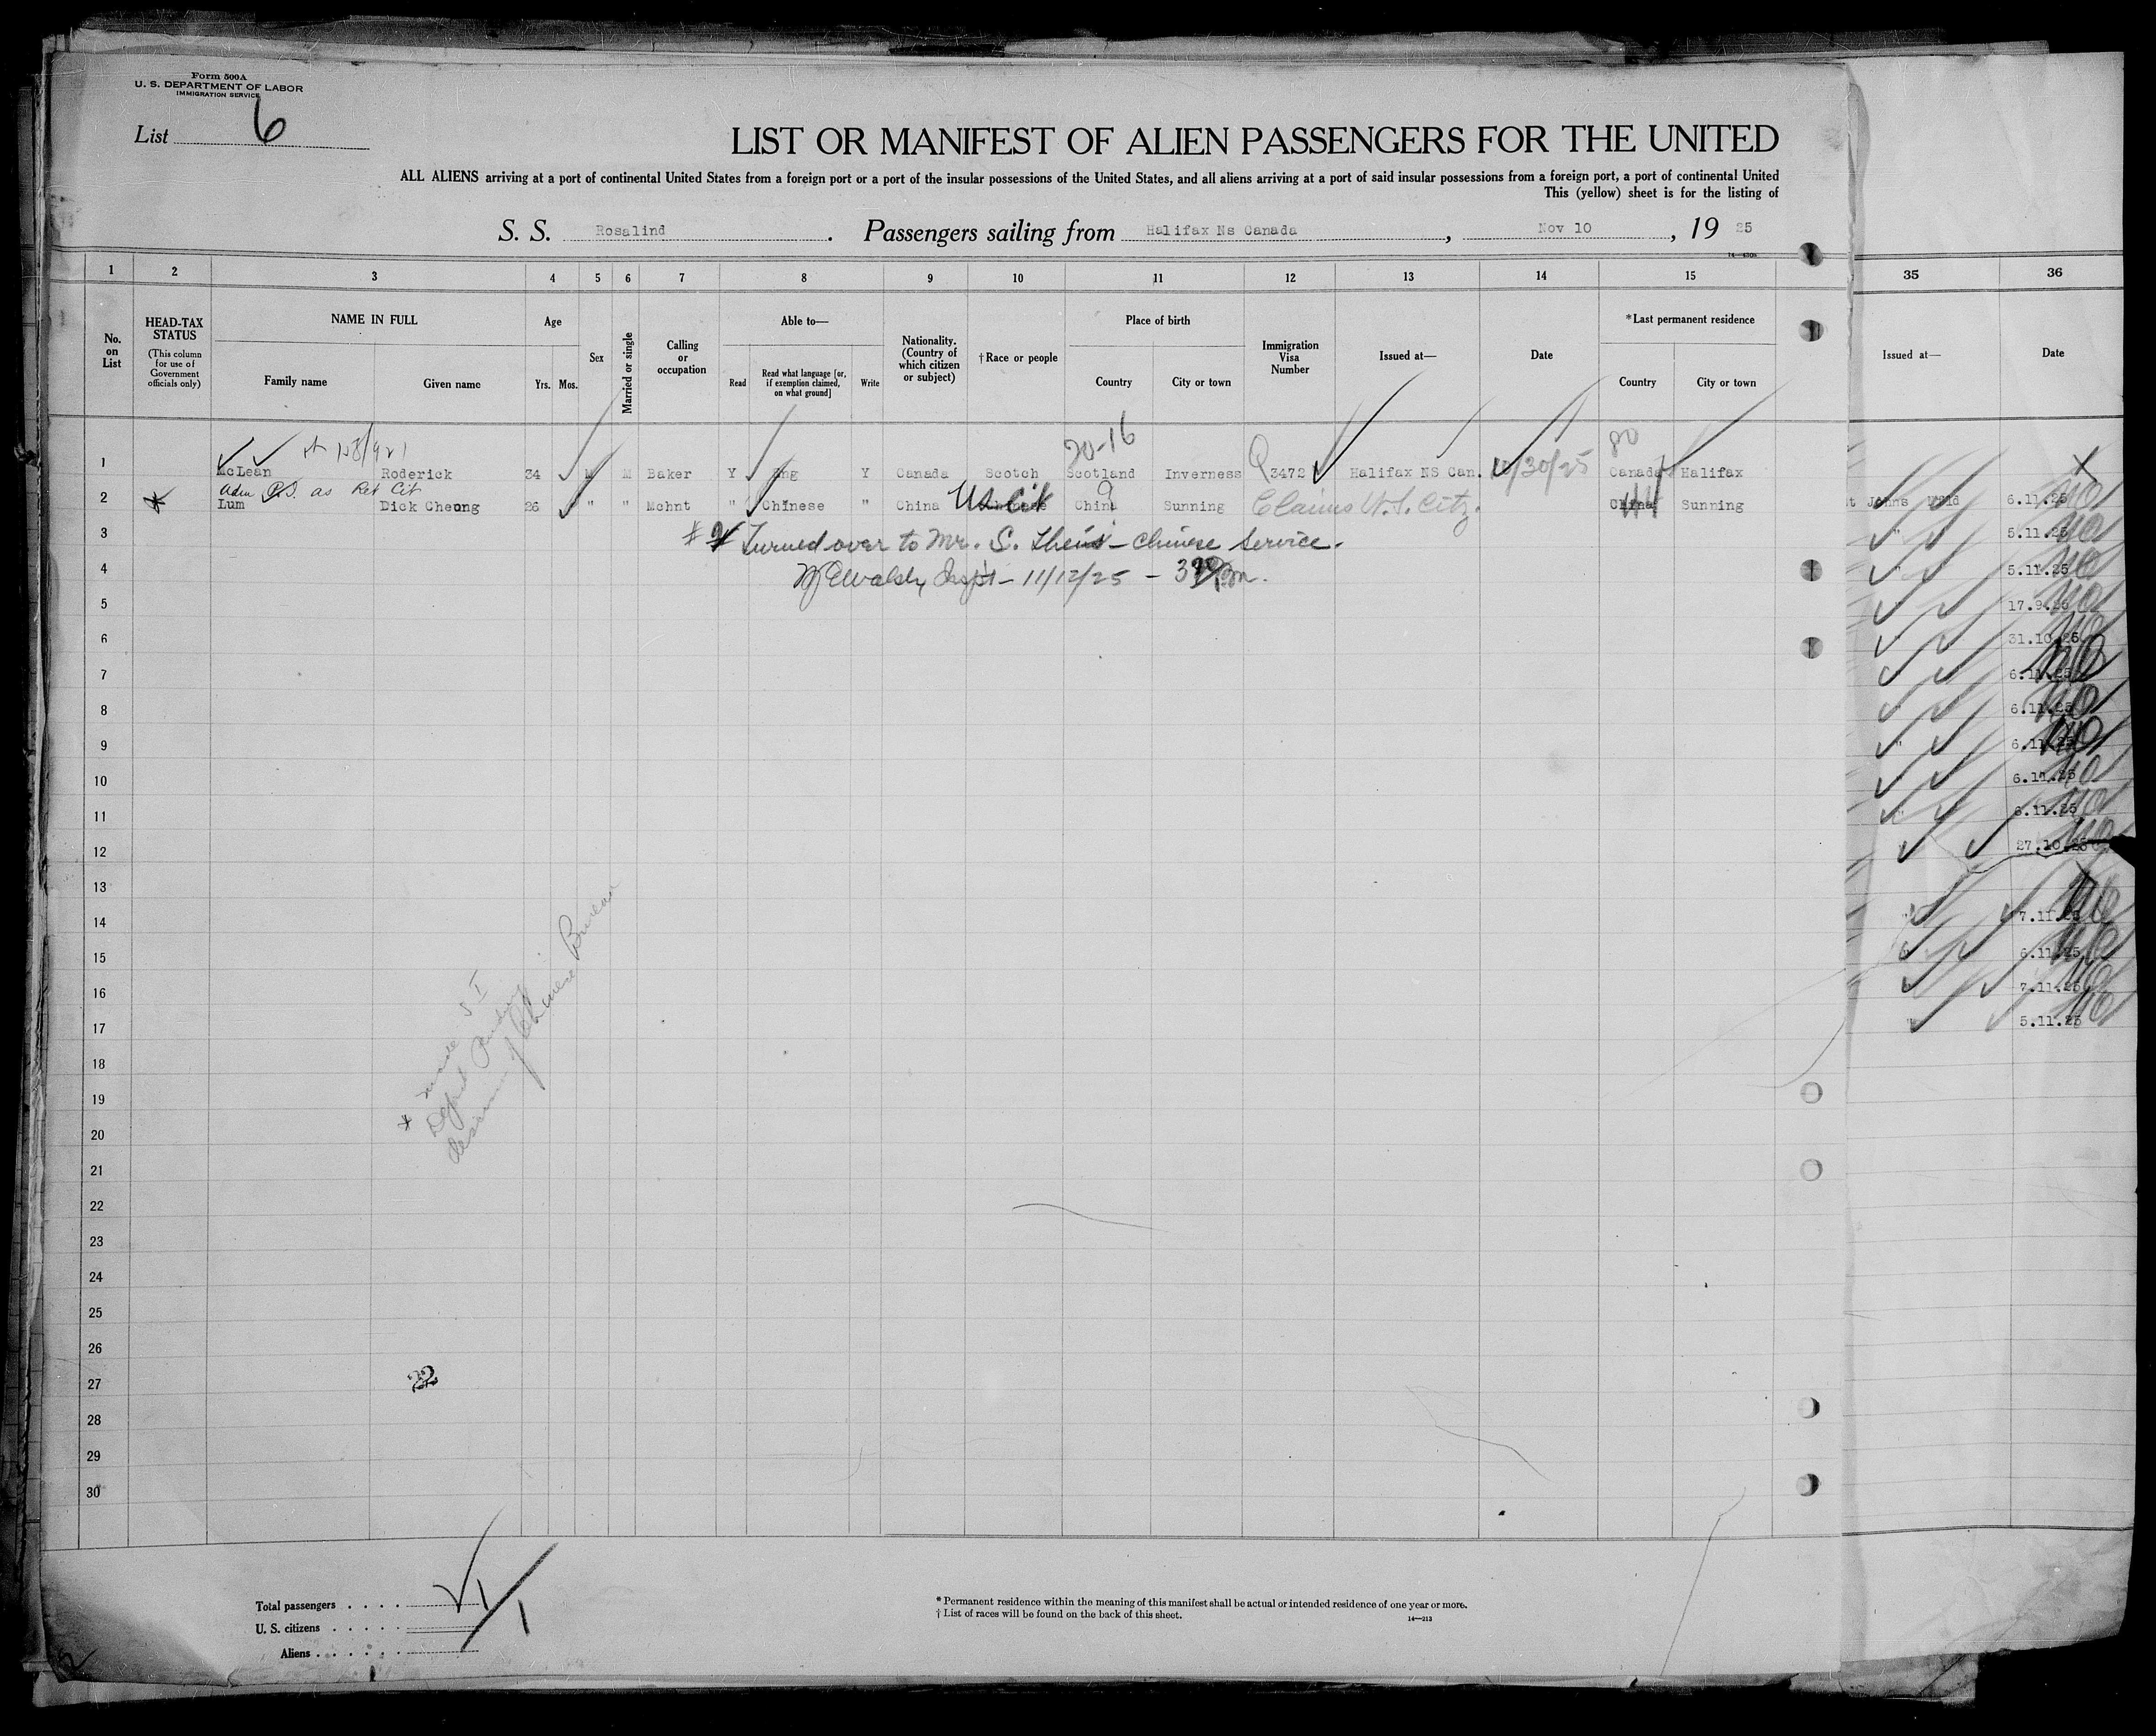 Form 500A
U. S. DEPARTMENT OF LABOR
IMMIGRATION SERVICE
List 6
LIST OR MANIFEST OF ALIEN PASSENGERS FOR THE UNITED
ALL ALIENS arriving at a port of continental United States from a foreign port or a port of the insular possessions of the United States, and all aliens arriving at a port of said insular possessions from a foreign port, a port of continental United
This (yellow) sheet is for the listing of
S. S. Rosalind. Passengers sailing from Halifax Ns Canada, Nov 10, 19 25
1 2 3 4 5 6 7 8 9 10 11 12 13 14 15 35 36
No. on List
HEAD-TAX STATUS
(This column for use of Government officials only)
NAME IN FULL
Family name Given name
Age
Yrs. Mos.
Sex
Married or single
Calling or occupation
Able to—
Read Read what language [or, if exemption claimed, on what ground] Write
Nationality. (Country of which citizen or subject)
†Race or people
Place of birth
Country City or town
Immigration Visa Number
Issued at—
Date
*Last permanent residence
Country City or town
Issued at— Date
20-16 80
1 McLean Roderick 34 M M Baker Y Eng Y Canada Scotch Scotland Inverness Q3472 Halifax NS Can. 10/30/25 Canada Halifax
Adm P.S. as Ret Cit
2 Lum Dick Cheong 26 " " Mchnt " Chinese " China US Cit Chinese China Sunning Claims U.S. Citz. China Sunning
St Johns Nfld 6.11.25
3 # Turned over to Mr. S. Theis - Chinese Service.
" 5.11.25
4 Walsh, Inspt - 11/12/25 - 3 Pm.
" 5.11.25
5 17.9.25
6 " 31.10.25
7 6.11.25
8 6.11.25
9 " 6.11.25
10 6.11.25
11 6.11.25
12 " 27.10.25
13
14 " 7.11.25
15 6.11.25
16 7.11.25
17 " 5.11.25
18
19
20
21
22
23
24
25
26
27
28
29
30
* made S I
Defd Pending
decision of Chinese Bureau
22
Total passengers
U. S. citizens 1
Aliens 1
* Permanent residence within the meaning of this manifest shall be actual or intended residence of one year or more.
† List of races will be found on the back of this sheet.
14—213